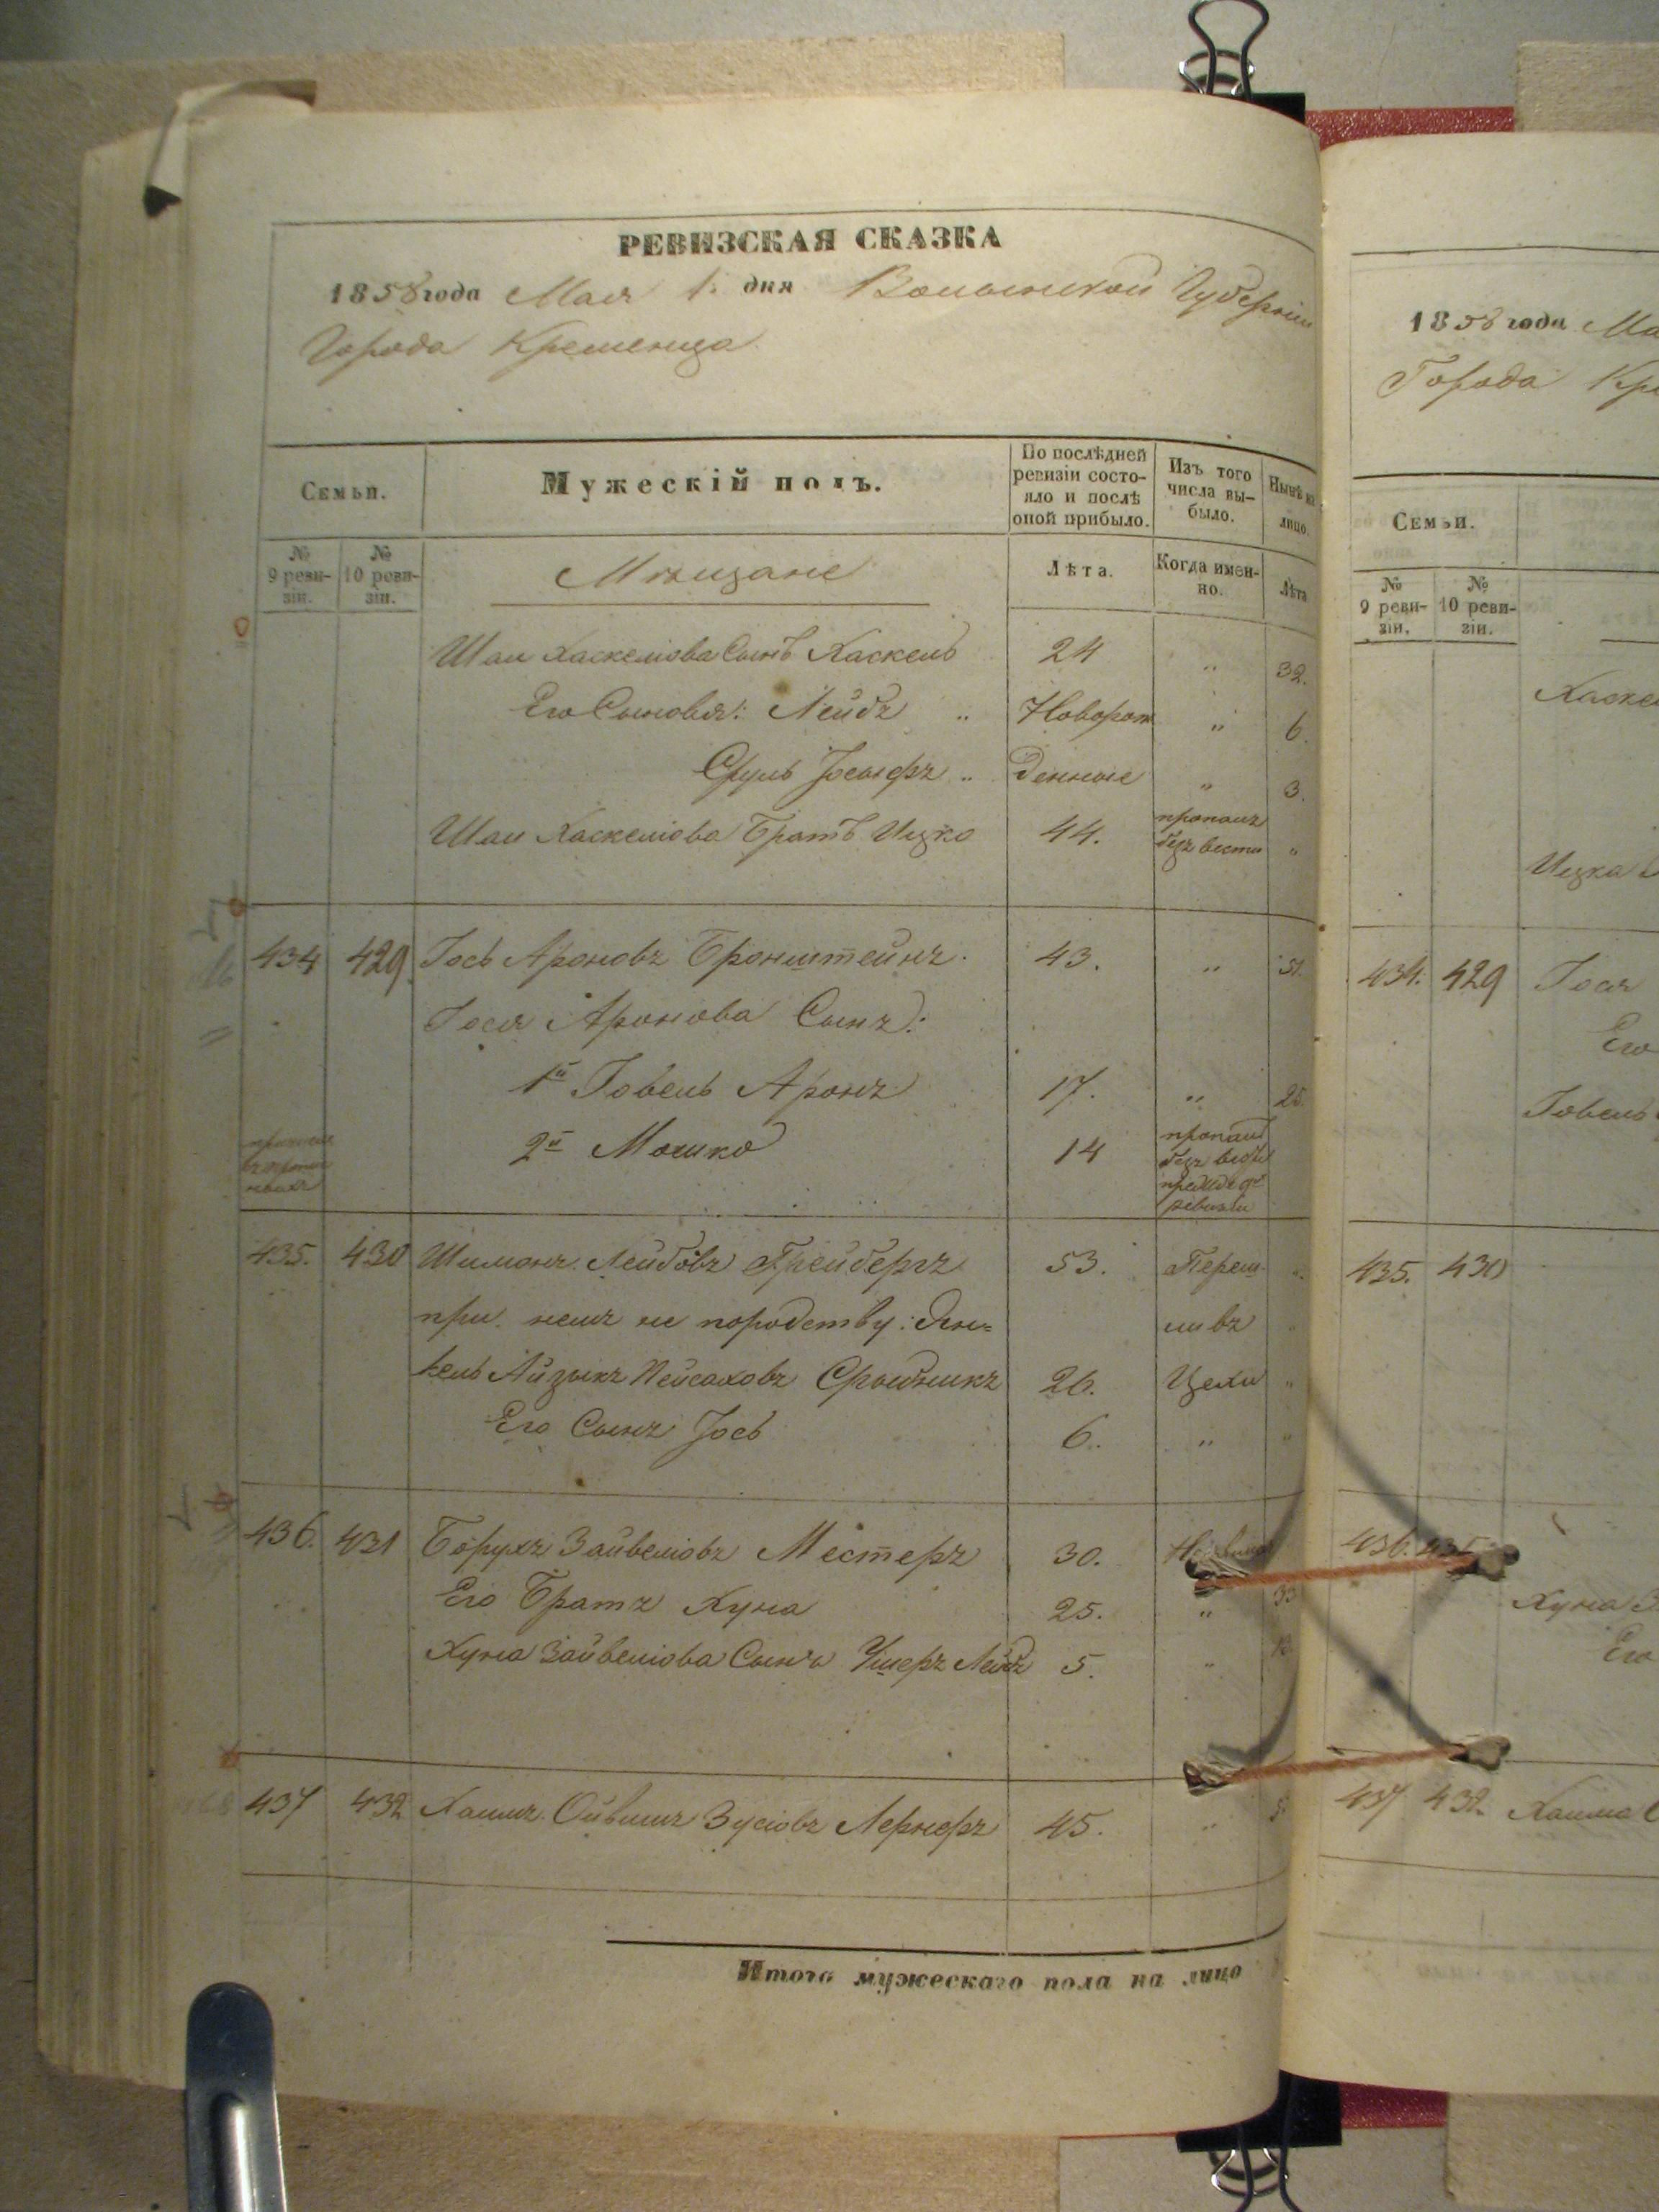 РЕВИЗСКАЯ СКАЗКА
1858 года Мая 1. дня Волынской Губерніи
Города Кременца
Семьи.
Мужескій полъ.
По послѣдней ревизіи состояло и послѣ оной прибыло.
Изъ того числа выбыло.
Нынѣ на лицо.
№ 9 ревизіи.
№ 10 ревизіи.
Мѣщане
Лѣта.
Когда именно.
Лѣта
Шаи Хаскелiова Сынъ Хаскель 24 " 32.
Его Сыновья: Лейбъ " Новорож " 6.
Сруль Іосыфъ " денные " 3.
Шаи Хаскелiова Братъ Ицко 44. пропалъ безъ вести "
434 429 Іось Ароновъ Бронштейнъ. 43. " 51.
Іося Аронова Сынъ:
1й Говель Аронъ 17. " 25.
2й Мошко 14 пропалъ безъ вести
прежде 9й ревизіи
435. 430 Шимонъ Лейбовъ Грейбергъ 53. Переш "
при немъ не породству: Ян= ливъ "
кель Айзыкъ Пейсаховъ 26. Цехи "
Его Сынъ Іось 6. " "
436. 431 Борухъ Зайвелiовъ Местеръ 30.
Его Братъ Хуна 25. " 33
Хуна Зайвелiова Сынъ Ушеръ Лейбъ 5. " 13
437 432 Хаимъ Ойвишъ Зусiовъ Лернеръ 45. "
Итого мужескаго пола на лицо
1858 года Ма
Города Кре
Семьи.
№ 9 ревизіи.
№ 10 ревизіи.
Хаске
Ицка
434. 429 Іося
Его
Говель
435. 430
436.
Хуна З
Его
437 432 Хаима О